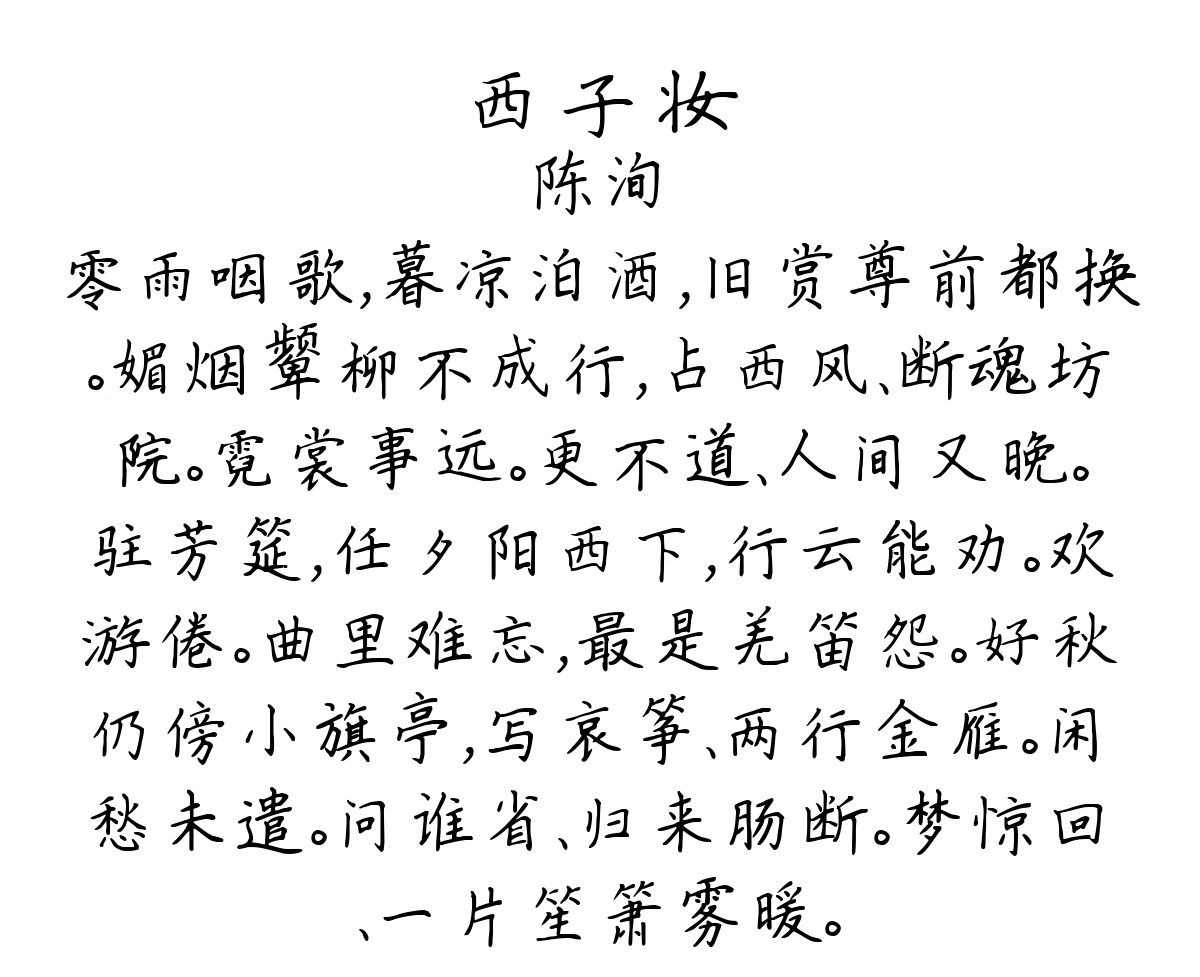 西子妆
陈洵
零雨咽歌,暮凉泊酒,旧赏尊前都换
。媚烟颦柳不成行,占西风、断魂坊
院。霓裳事远。更不道、人间又晚。
驻芳筵,任夕阳西下,行云能劝。欢
游倦。曲里难忘,最是羌笛怨。好秋
仍傍小旗亭,写哀筝、两行金雁。闲
愁未遣。问谁省、归来肠断。梦惊回
、一片笙箫雾暖。